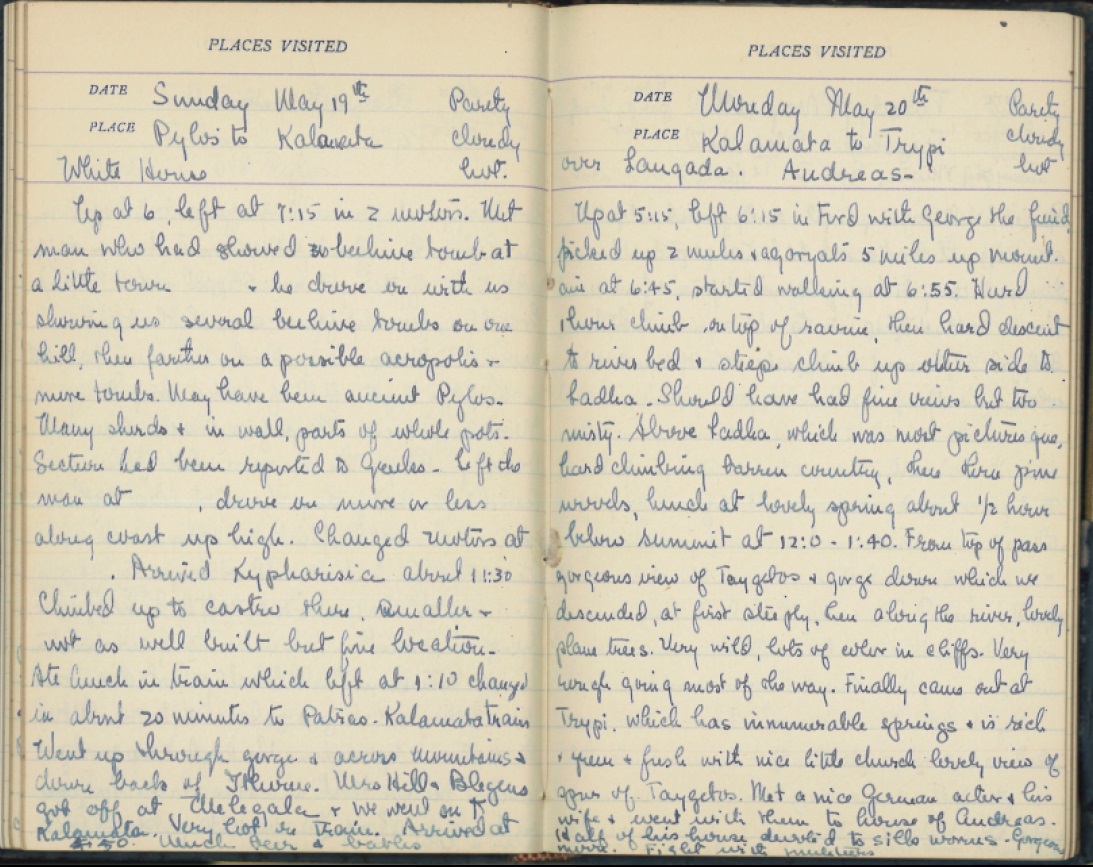 PLACES VISITED
DATE Sunday May 19th Partly
PLACE Pylos to Kalamata cloudy
White House hot.
Up at 6, left at 7:15 in 2 motors. Met
man who had showed beehive tomb at
a little town & he drove on with us
showing us several beehive tombs on one
hill, then farther on a possible acropolis &
more tombs. May have been ancient Pylos.
Many sherds & in wall, parts of whole pots.
Section had been reported to Greeks. Left the
man at , drove on more or less
along coast up high. Changed motors at
. Arrived Kypharisia about 11:30
Climbed up to castro there, smaller &
not as well built but fine location.
Ate lunch in train which left at 1:10 changed
in about 20 minutes to Patras-Kalamata train
Went up through gorge & across mountains &
down back of Ithome. Mrs Hill & Blegens
got off at Melegala & we went on to
Kalamata. Very hot in train. Arrived at
4:50. Much beer &
PLACES VISITED
DATE Monday May 20th Partly
PLACE Kalamata to Trypi cloudy
over Langada. Andreas- hot
Up at 5:15, left 6:15 in Ford with George the guide,
picked up 2 mules & agoryats 5 miles up mount.
ain at 6:45, started walking at 6:55. Hard
1 hour climb on top of ravine, then hard descent
to river bed & steep climb up other side to
Ladha. Should have had fine views but too
misty. Above Ladha, which was most picturesque,
hard climbing barren country, then thru pine
woods, lunch at lovely spring about 1/2 hour
below summit at 12:0 - 1:40. From top of pass
gorgeous view of Taygetos & gorge down which we
descended, at first steeply, then along the river, lovely
plane trees. Very wild, lots of color in cliffs. Very
rough going most of the way. Finally came out at
Trypi, which has innumerable springs & is rich
& green & fresh with nice little church lovely view of
spur of Taygetos. Met a nice German actor & his
wife & went with them to house of Andreas.
Half of his house devoted to silk worms - Gorgeous
moon. Fight with muleteers